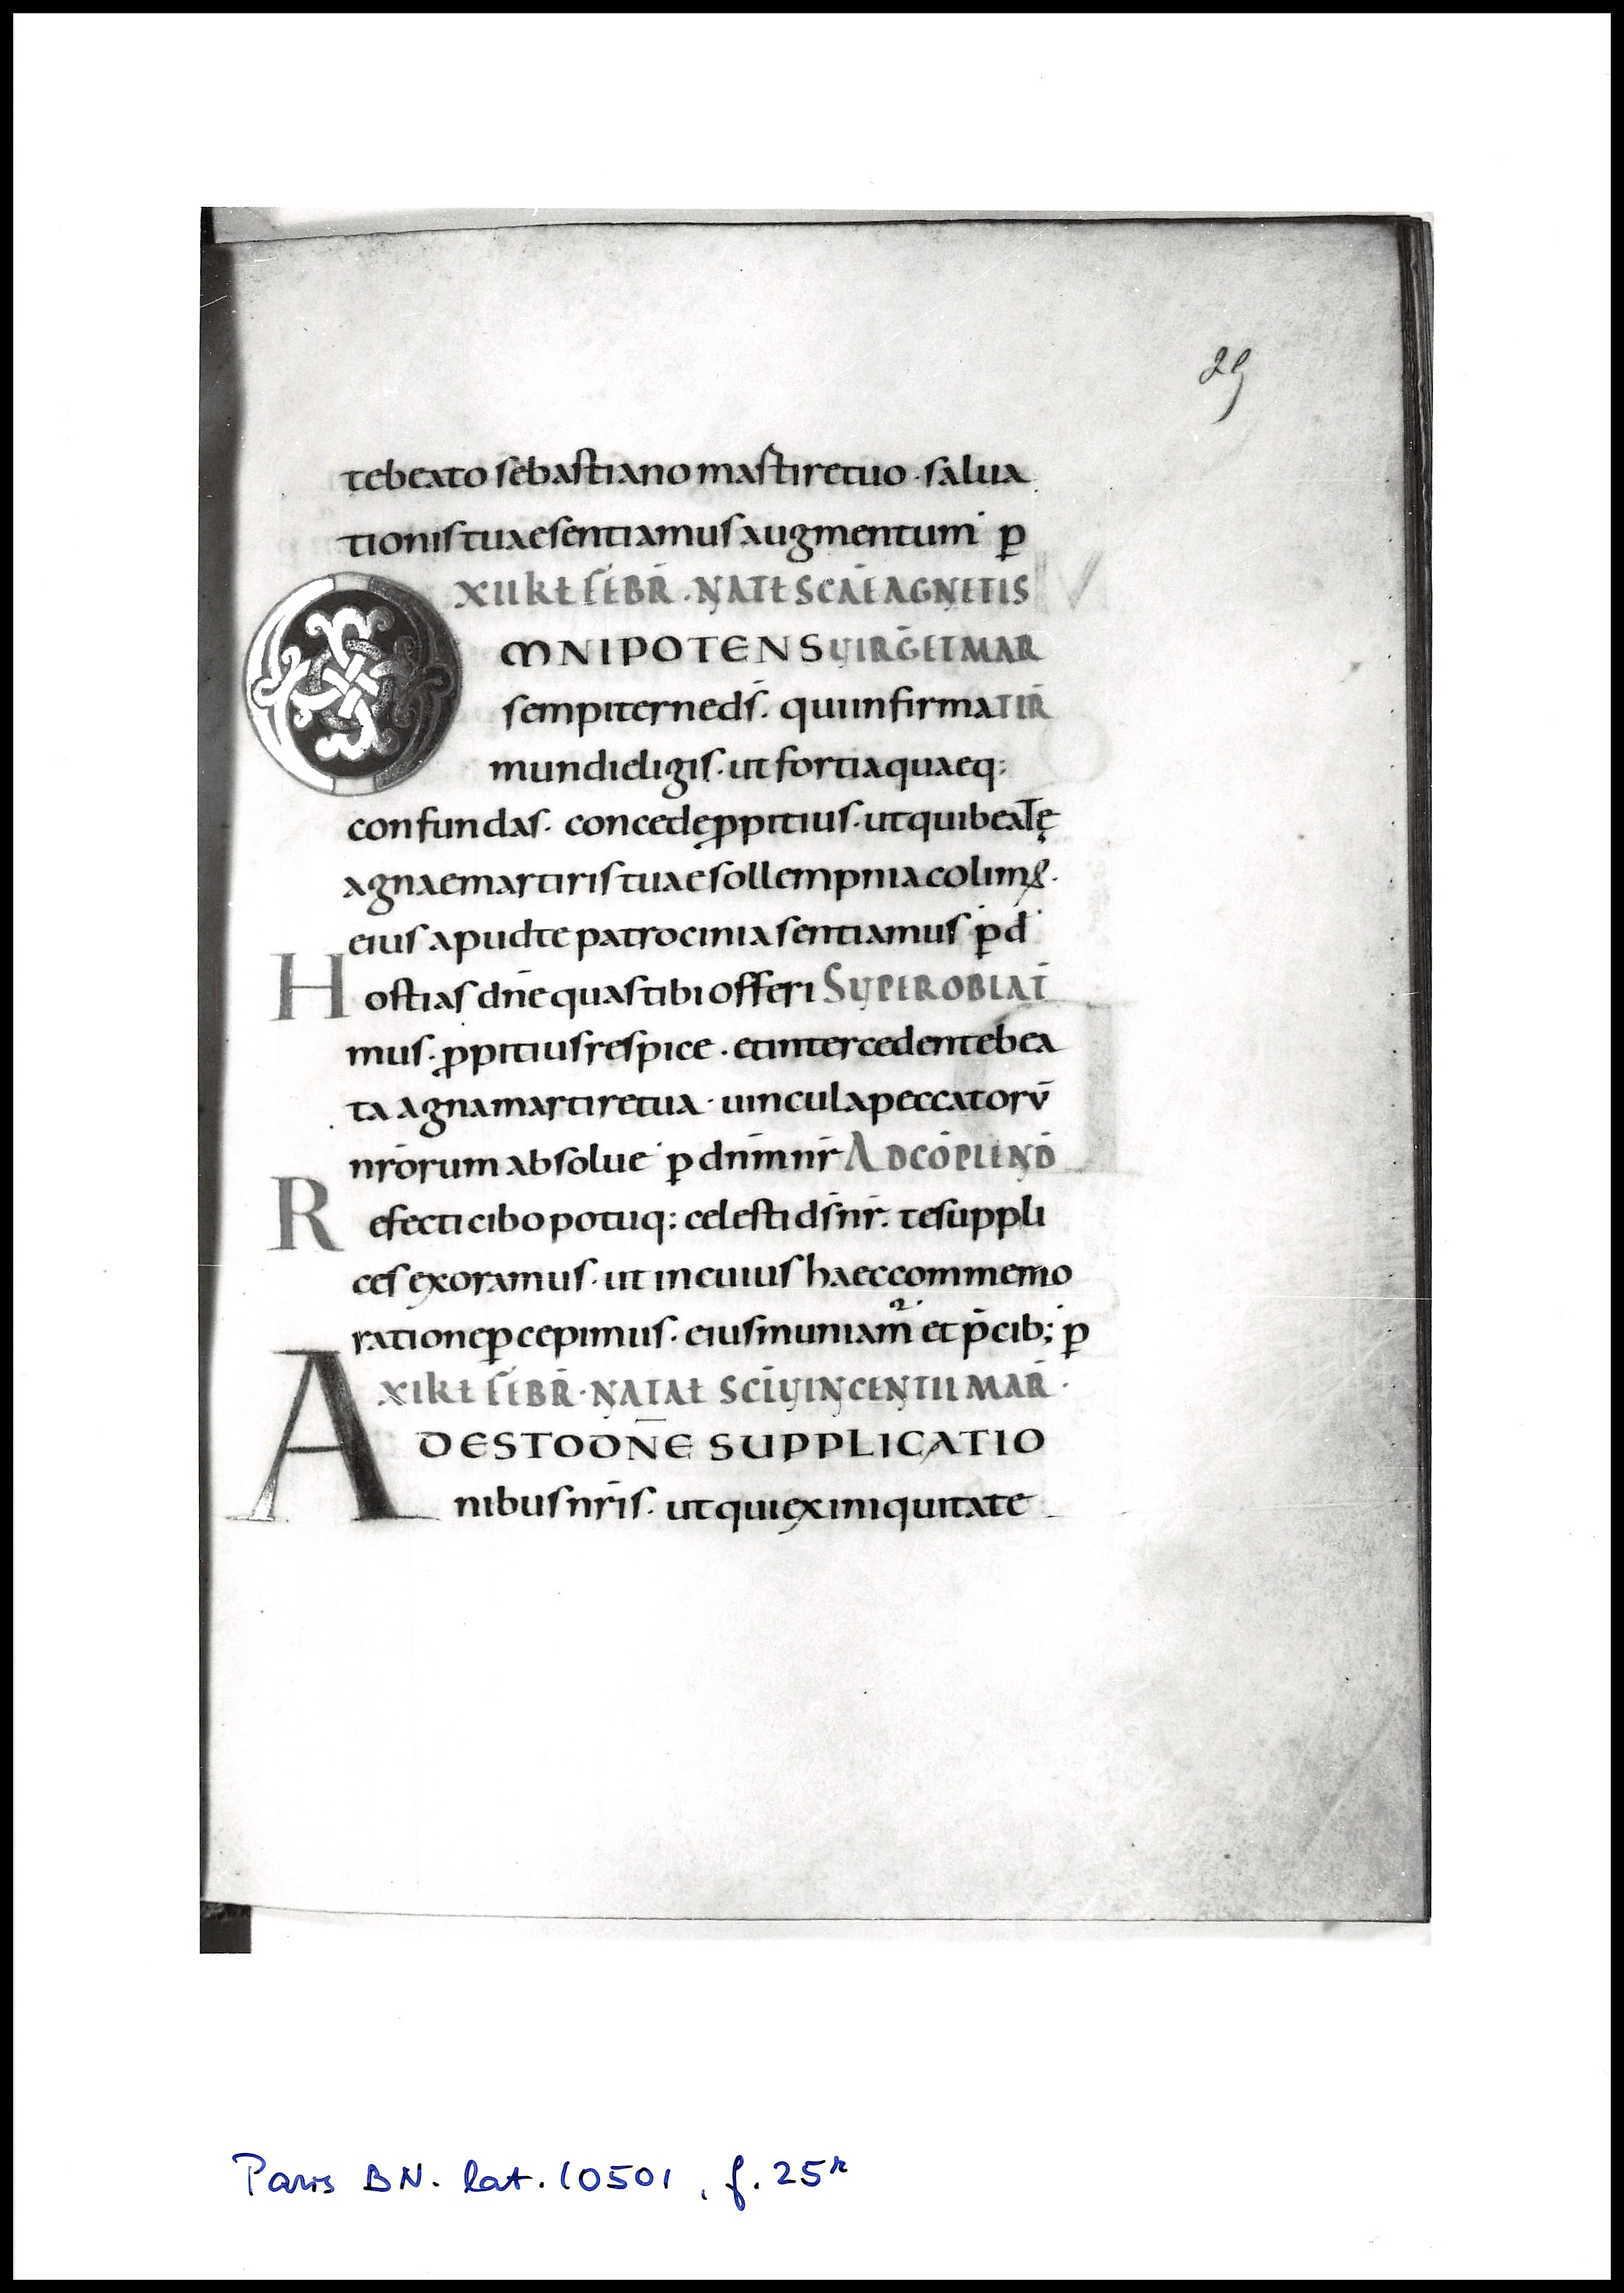 25
te beato sebastiano mastire tuo · salua
tionis tuae sentiamus augmentum p̄
XII kł FEBR̄ · NATł SCAE AGNETIS
OMNIPOTENS UIRḠ ET MAR
sempiterne ds̄ · qui infirma TIR̄
mundi eligis · ut fortia quaeq:
confundas · concede ꝓpitius · ut qui beatę
agnae martiris tuae sollempnia colimꝰ ·
eius apud te patrocinia sentiamus · p̄ d̄
Hostias dn̄e quas tibi offeri SUPER OBLAT̄
mus · ꝓpitius respice · et intercedente bea
ta agna martire tua · uincula peccatorū
nr̄orum absolue · p̄ dn̄m nr̄ AD CŌPLEND̄
Refecti cibo potuq: celesti ds̄ nr̄ · te suppli
ces exoramus · ut in cuius haec commemo
ratione ꝑcepimus · eius muniam̄ et p̄cib; p̄
XI kł FEBR̄ · NATAł SCĪ UINCENTII MAR̄ ·
ADESTO DN̄E SUPPLICATIO
nibus nr̄is · ut qui ex iniquitate
Paris BN. lat. 10501, f. 25r